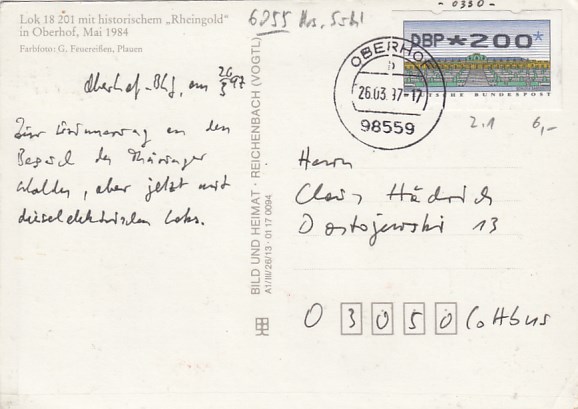 Lok 18 201 mit historischem „Rheingold"
in Oberhof, Mai 1984
Farbfoto: G. Feuereißen, Plauen
6255
- 0350 -
DBP *200*
DEUTSCHE BUNDESPOST
OBERHOF
b
26.03.97-17
98559
2.1 6,-
Oberhof-Bhf, am 26/3 97
Zur Erinnerung an den
Besuch des Thüringer
Waldes, aber jetzt mit
dieselelektrischen Loks.
BILD UND HEIMAT · REICHENBACH (VOGTL)
A1/III/26/13 · 01 17 0094
Herrn
Claus Hädrich
Dostojewski 13
O 3050 Cottbus